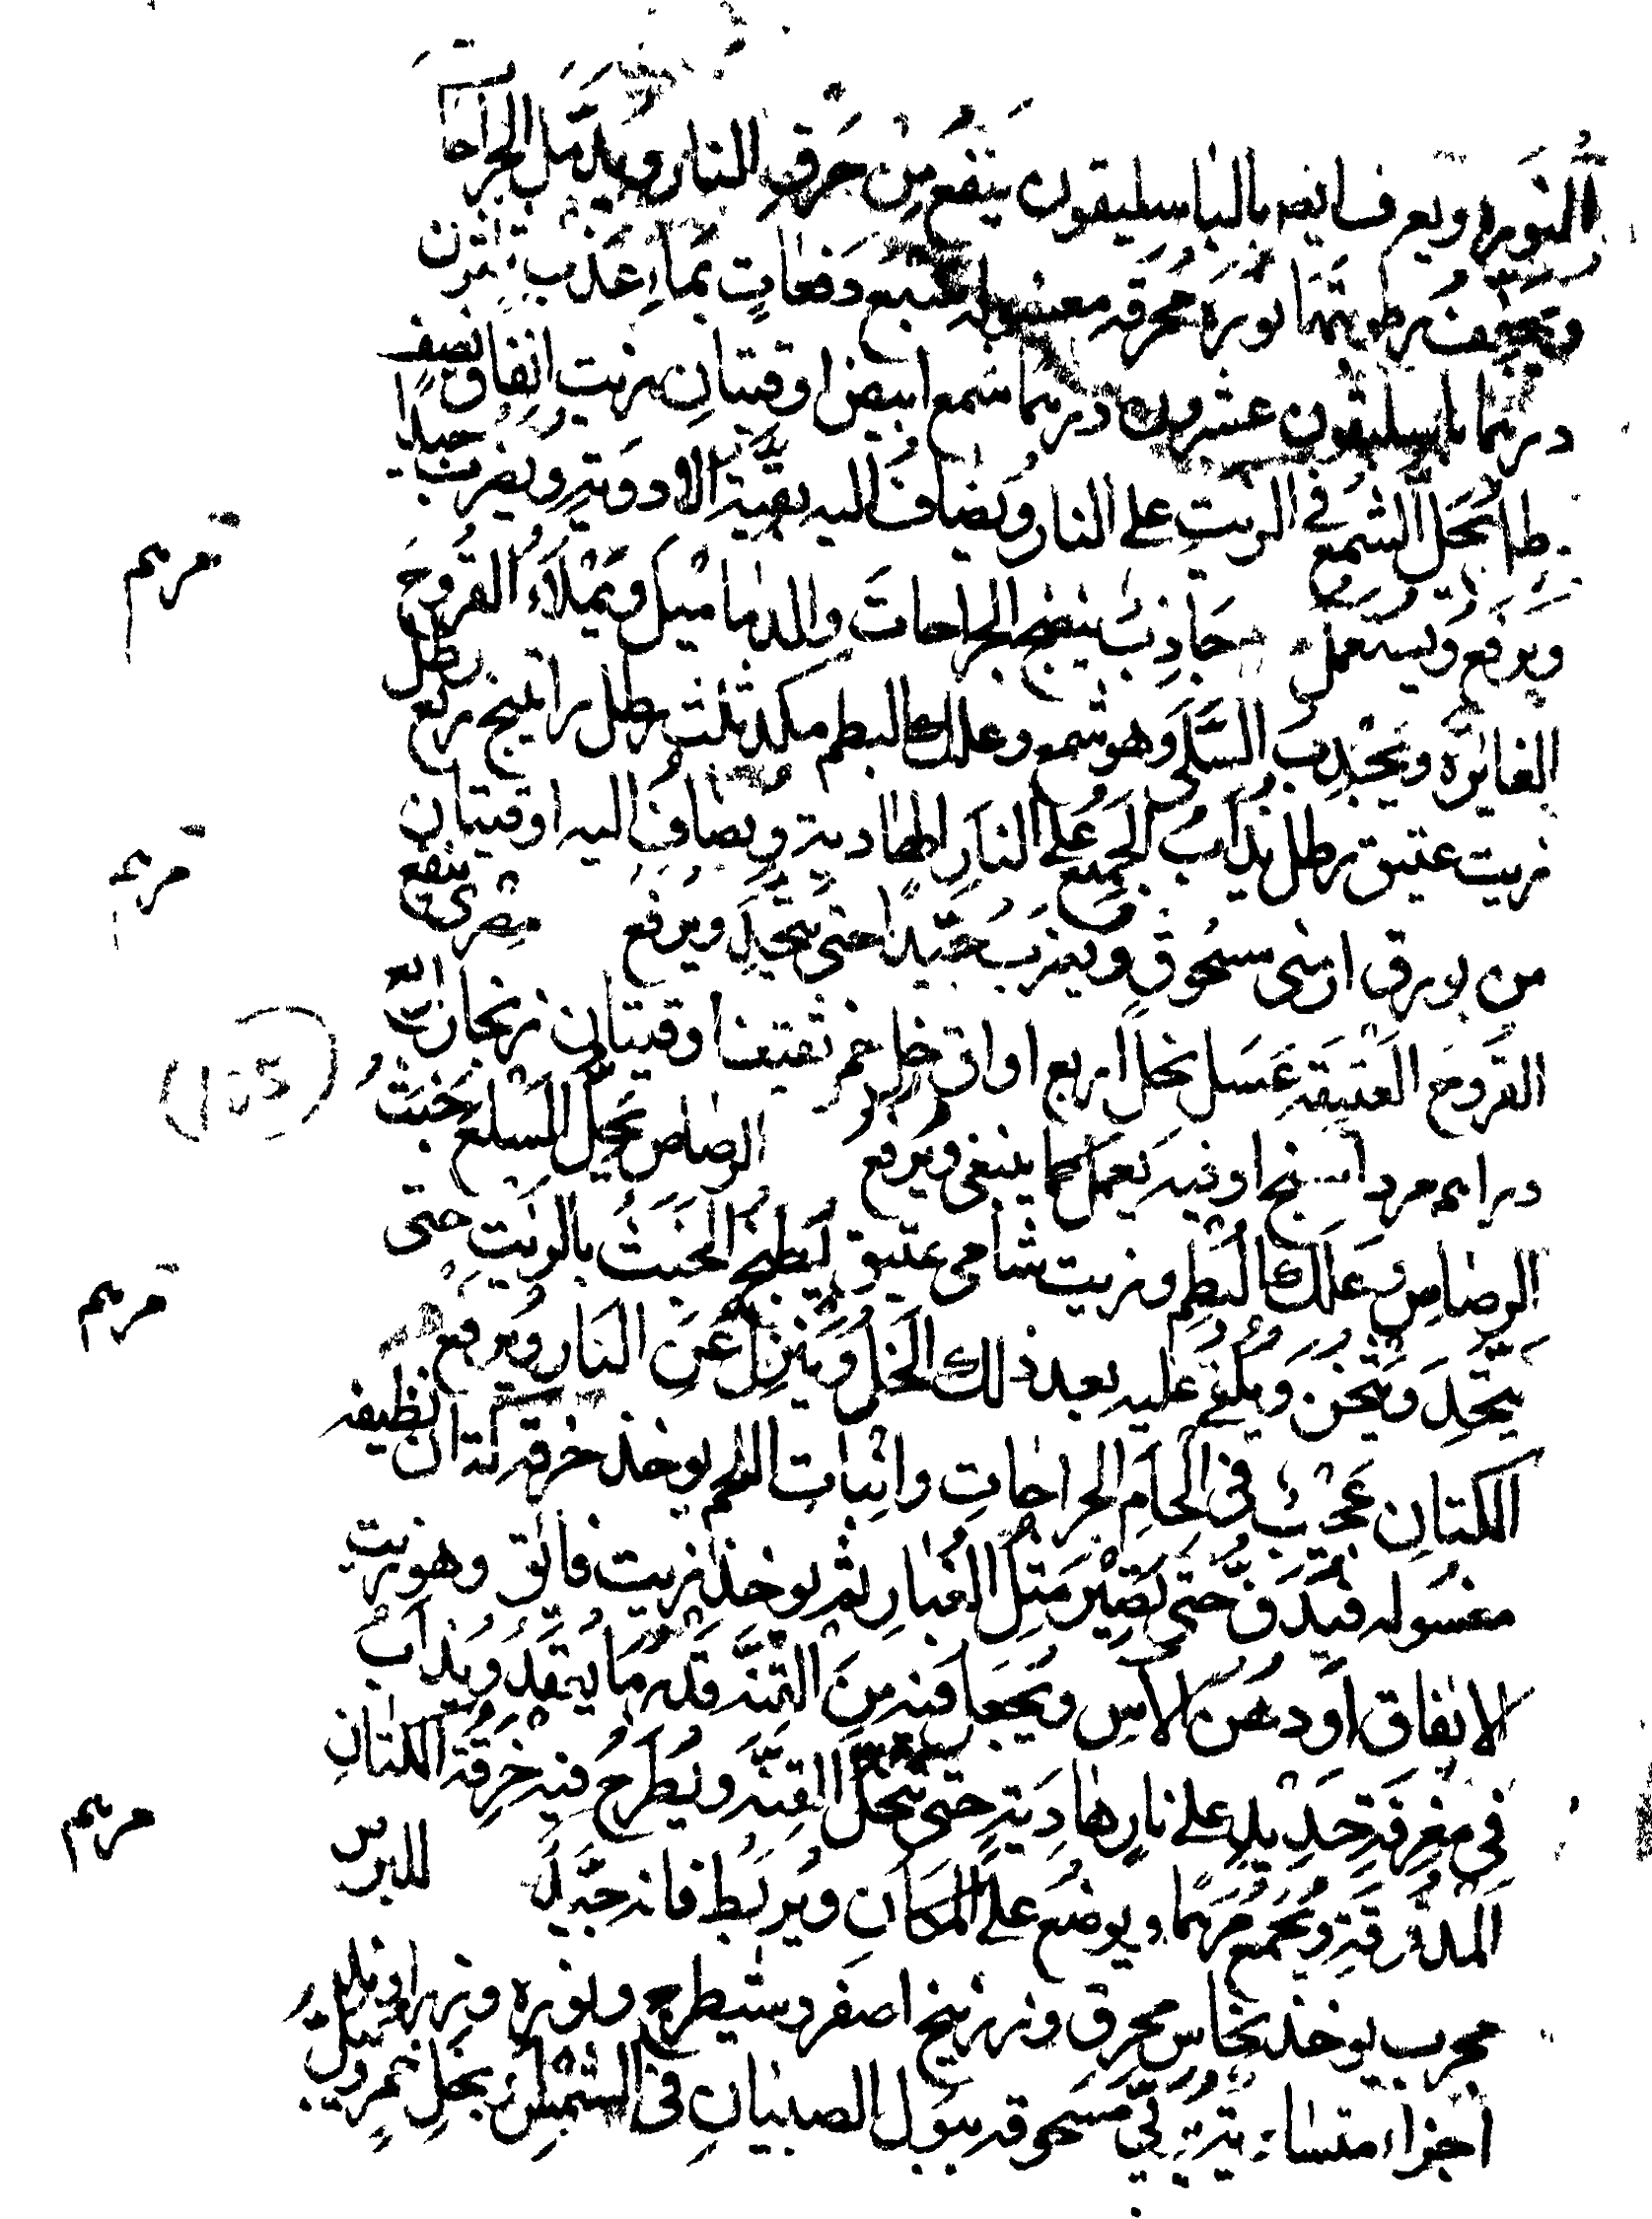 النوره ويعرف ايضا بالباسليقون ينفع من حرق النار ويدمل الجراحات
ويجفف رطوبتها نوره محرقه مغسوله سبع دفعات بماء عذب
درهما باسليقون عشرون درهما شمع ابيض اوقيتان زيت انفاق نصف
رطل يحل الشمع في الزيت على النار ويضاف اليه بقية الادوية ويضرب جيدا
ويرفع ويستعمل جاذب ينضج الجراحات والدماميل ويملاء القروح
مرهم
الغايرة ويجذب السلى وهو شمع وعلك البطم مكد ثلث رطل راتينج ربع رطل
زيت عتيق رطل يذاب الجميع على النار الهادية ويضاف اليه اوقيتان
مرهم
من بورق ارمنى مسحوق ويضرب جيدا حتى يتحد ويرفع مصرى ينفع
القروح العتيقة عسل نحل اربع اواق خل خمر ثقيف اوقيتان زنجار
(105)
دراهم مرداسنج اوقيه يعمل كما ينبغى ويرفع الرصاص يحلل السلع خبث
الرصاص وعلك البطم وزيت شامى عتيق يطبخ الخبث بالزيت حتى
مرهم
يتحد ويثخن ويلقى عليه بعد ذلك الخل وينزل عن النار ويرفع
الكتان عجيب فى الحام الجراحات وانبات اللحم يوخذ خرقه كتان نظيفه
مغسوله فيدق حتى تصير مثل الغبار ثم يوخذ زيت فايق وهو زيت
الانفاق او دهن الاس ويجعل فيه من القنه قدر ما يعقد ويذاب
فى مغرفة حديد على نار هادية حتى تنحل القنه ويطرح فيه خرقة الكتان
مرهم
المدقوقة ويجمع مرهما ويوضع على المكان ويربط فانه جيد للبرص
مجرب يوخذ نحاس محرق وزرنيخ اصفر وشيطرج ونوره
اجزاء متساوية مسحوقه ببول الصبيان فى الشمس بخل خمر